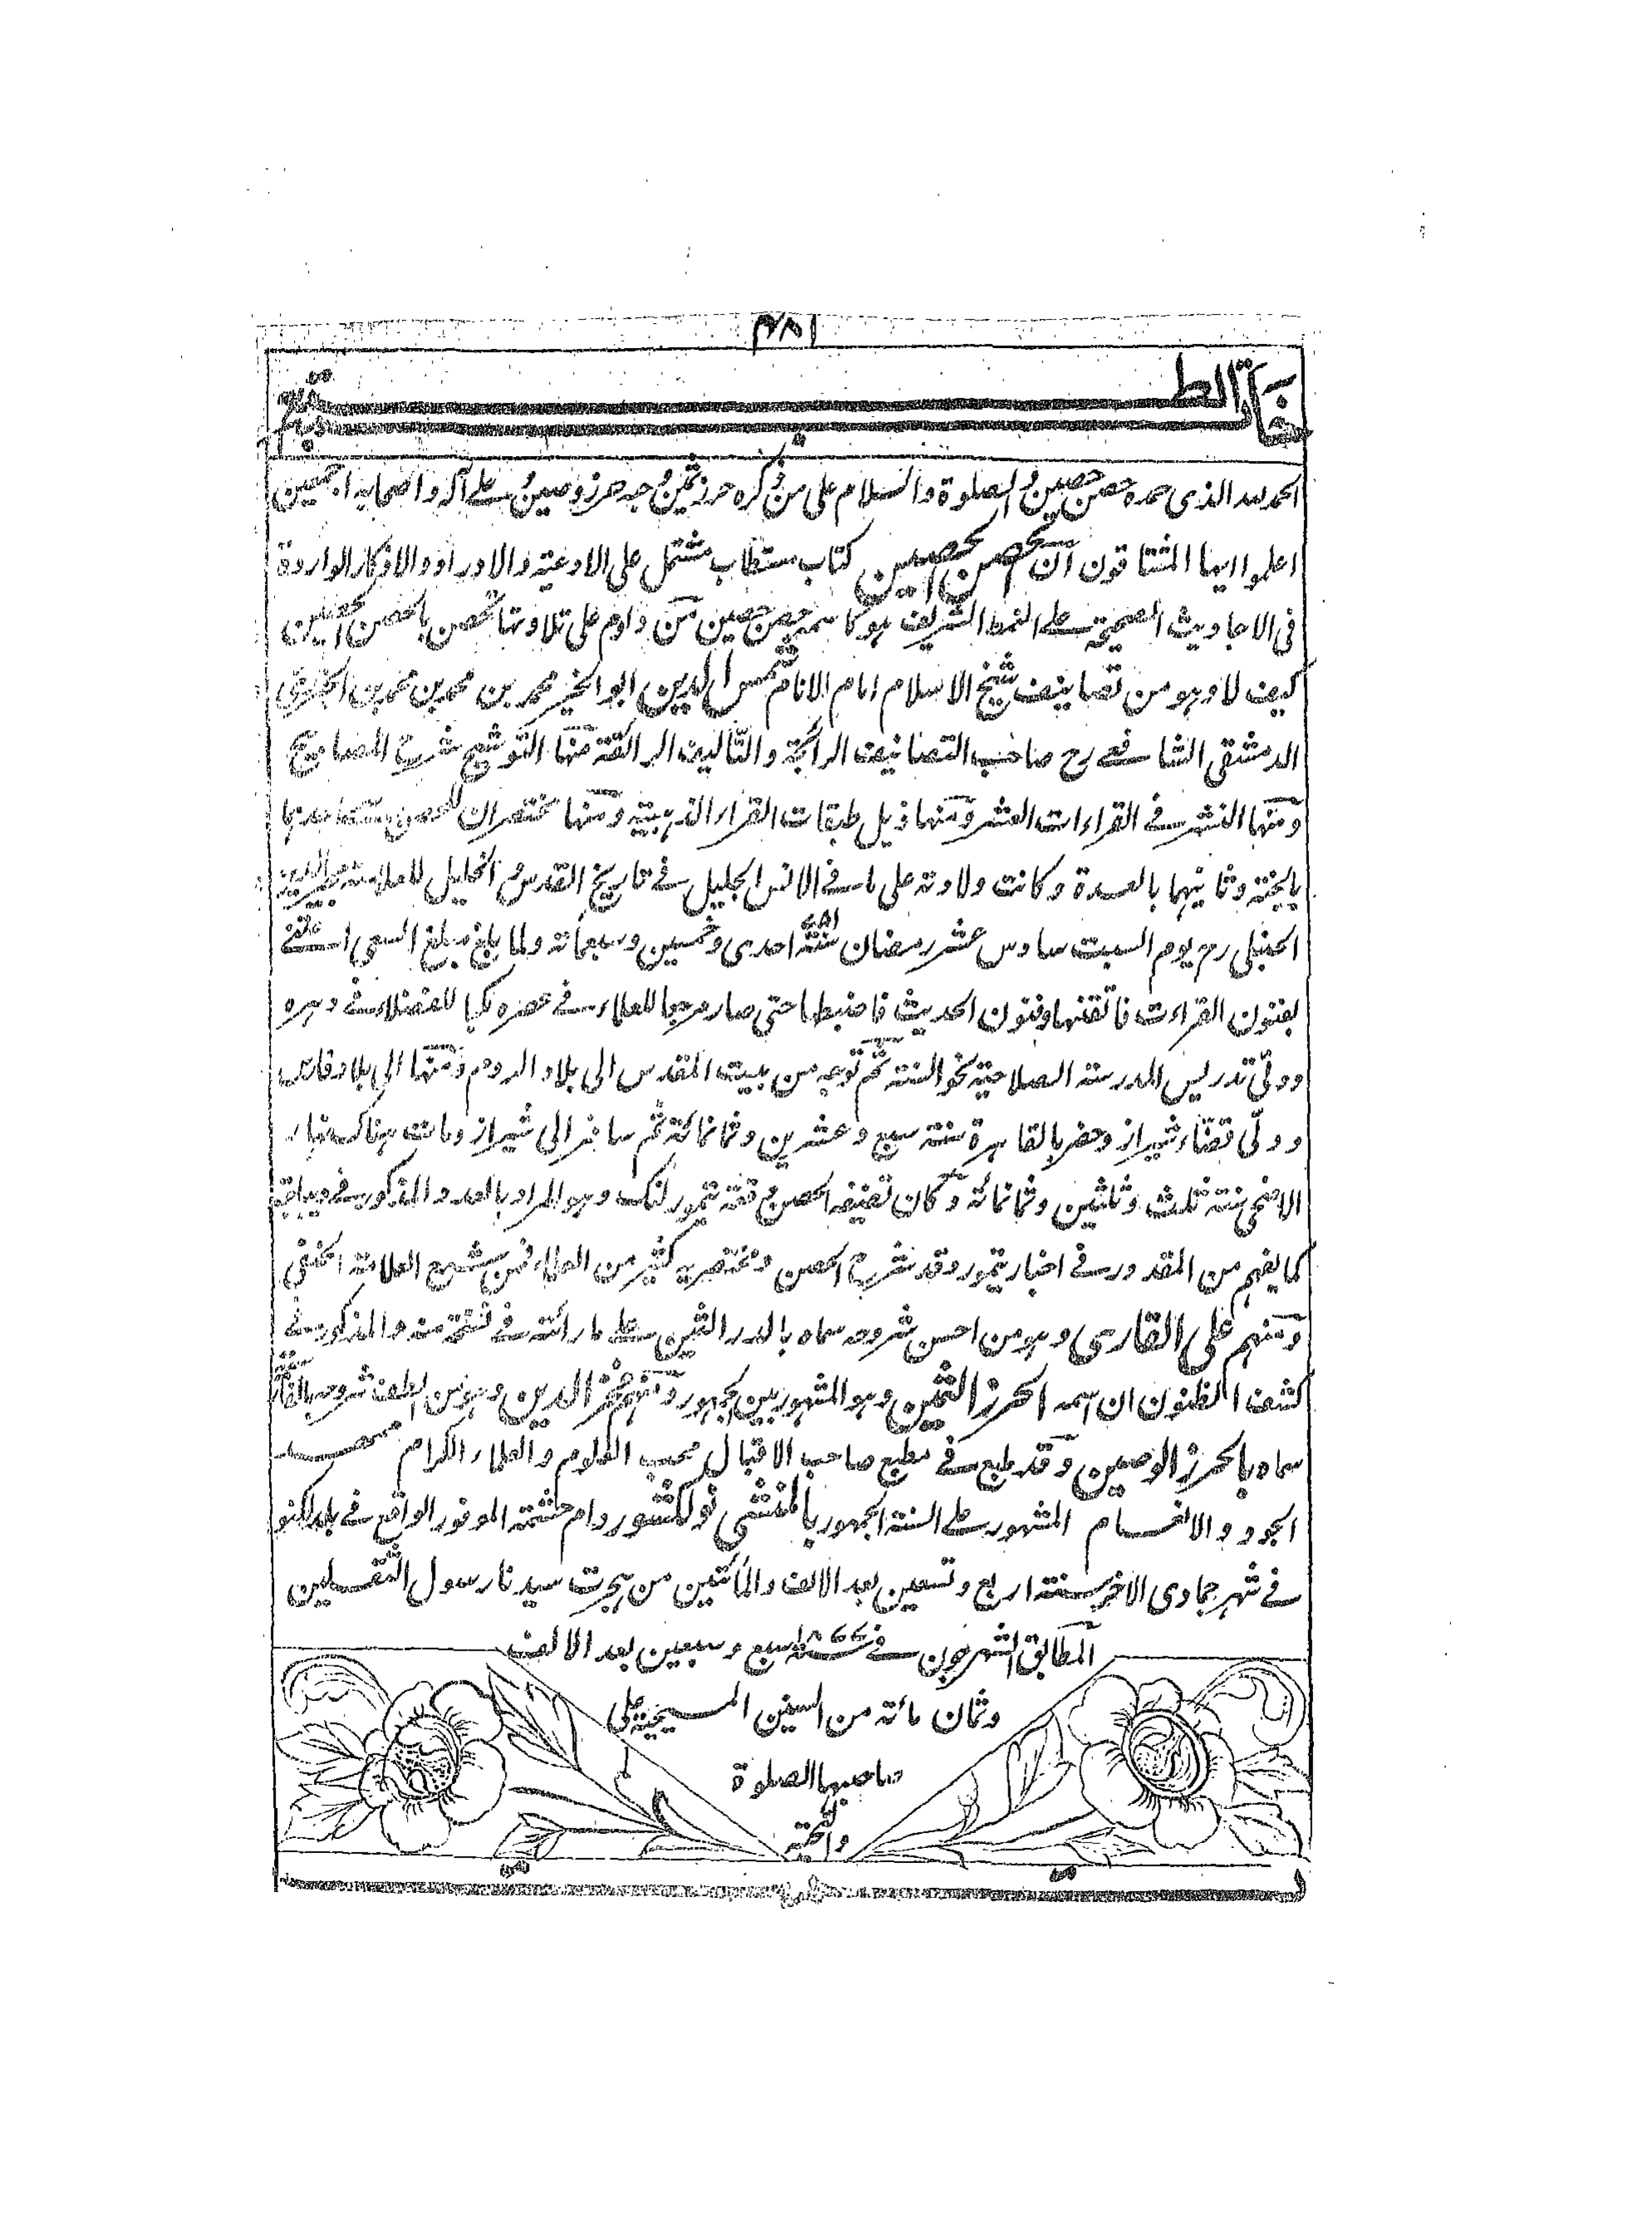 ٣٨١
خاتمة الطبع
الحمد لله الذى حمده حصن حصين والصلوة والسلام على من ذكره حرز ثمين وحبه حرز وصين وعلى آله واصحابه اجمعين
اعلموا ايها المشتاقون ان الحصن الحصين كتاب مستطاب مشتمل على الادعية والاوراد والاذكار الواردة
فى الاحاديث الصحيحة على النمط الشريف هو كاسمه حصن حصين من داوم على تلاوتها تحصن بالحصن الحصين
كيف لا وهو من تصانيف شيخ الاسلام امام الانام شمس الدين ابو الخير محمد بن محمد بن محمد بن الجزرى
الدمشقى الشافعى رح صاحب التصانيف الرائجة والتاليف الرائقة منها التوشيح شرح المصابيح
ومنها النشر فى القراءات العشر ومنها ذيل طبقات القراء الذهبية ومنها مختصران للحصن
بالجنة وثانيهما بالعدة وكانت ولادته على ما فى الانس الجليل فى تاريخ القدس والخليل للعلامة مجير الدين
الحنبلى رح يوم السبت سادس عشر رمضان سنة ٧٥١ احدى وخمسين وسبعمائة ولما بلغ مبلغ السعى اعتنى
بفنون القراءت فاتقنها وفنون الحديث فاضبطها حتى صار مرجعا للعلماء فى عصره للفضلاء فى دهره
وولى تدريس المدرسة الصلاحية نحو السنة ثم توجه من بيت المقدس الى بلاد الروم ومنها الى بلاد فارس
وولى قضاء شيراز وحضر بالقاهرة سنة سبع وعشرين وثمانمائة ثم سافر الى شيراز ومات هناك نهار
الاضحى سنة ثلث وثلثين وثمانمائة وكان تصنيفه الحصن فى وقعة تيمور لنك وهو المراد بالعدو المذكور فى ديباجة
كما يفهم من المقدور فى اخبار تيمور وقد شرح الحصن ومختصريه كثير من العلماء فمن العلامة الحنفى
ومنهم على القارى وهو من احسن شروحه سماه بالدر الثمين على ما رائته فى نسخة منه والمذكور فى
كشف الظنون ان اسمه الحرز الثمين وهو المشهور بين الجمهور ومنهم فخر الدين وهو من الطف شروحه
سماه بالحرز الوصين وقد طبع فى مطبع صاحب الاقبال محب العلوم والعلماء الكرام
الجود والانعام المشهور على السنة الجمهور بالمنشى نولكشور دام حشمته الموفور الواقع فى بلد لكنو
فى شهر جمادى الاخرى سنة اربع وتسعين بعد الالف والمأتين من هجرت سيدنا رسول الثقلين
المطابق لشهر جون فى سنة ١٨٧٧ سبع وسبعين بعد الالف
وثمان مائة من السنين المسيحية على
صاحبها الصلوة
والتحية